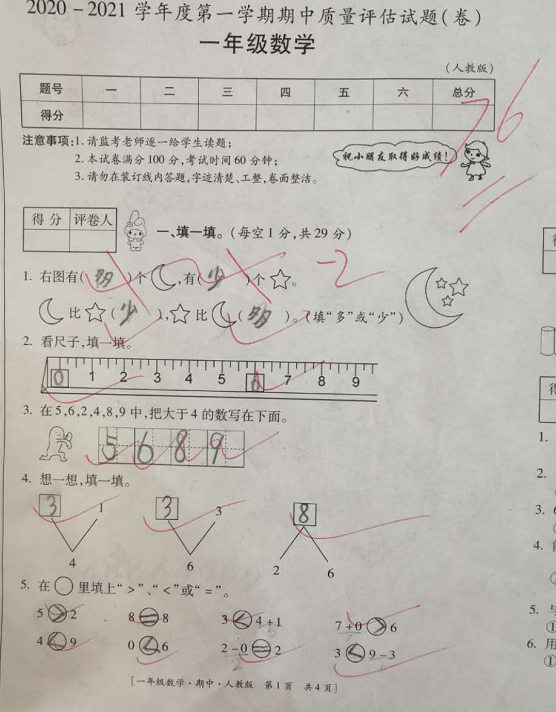 2020-2021学年度第一学期期中质量评估试题(卷)
一年级数学
(人教版)
题号 一 二 三 四 五 六 总分
得分
76
注意事项:1.请监考老师逐一给学生读题;
2.本试卷满分100分,考试时间60分钟;
3.请勿在装订线内答题,字迹清楚、工整,卷面整洁。
祝小朋友取得好成绩!
得分 评卷人
一、填一填。(每空1分,共29分)
-2
1. 右图有(多)个,有(少)个。
比(少),比(多)。(填“多”或“少”)
2. 看尺子,填一填。
0 1 2 3 4 5 6 7 8 9
3. 在5,6,2,4,8,9中,把大于4的数写在下面。
5 6 8 9
4. 想一想,填一填。
3 1 3 3 8
4 6 2 6
5. 在○里填上“>”、“<”或“=”。
5>2 8=8 3<4+1 7+0>6
4<9 0<6 2-0=2 3<9-3
[一年级数学·期中·人教版 第1页 共4页]
1.
2.
3.
4.
5.
①
6. 用
①